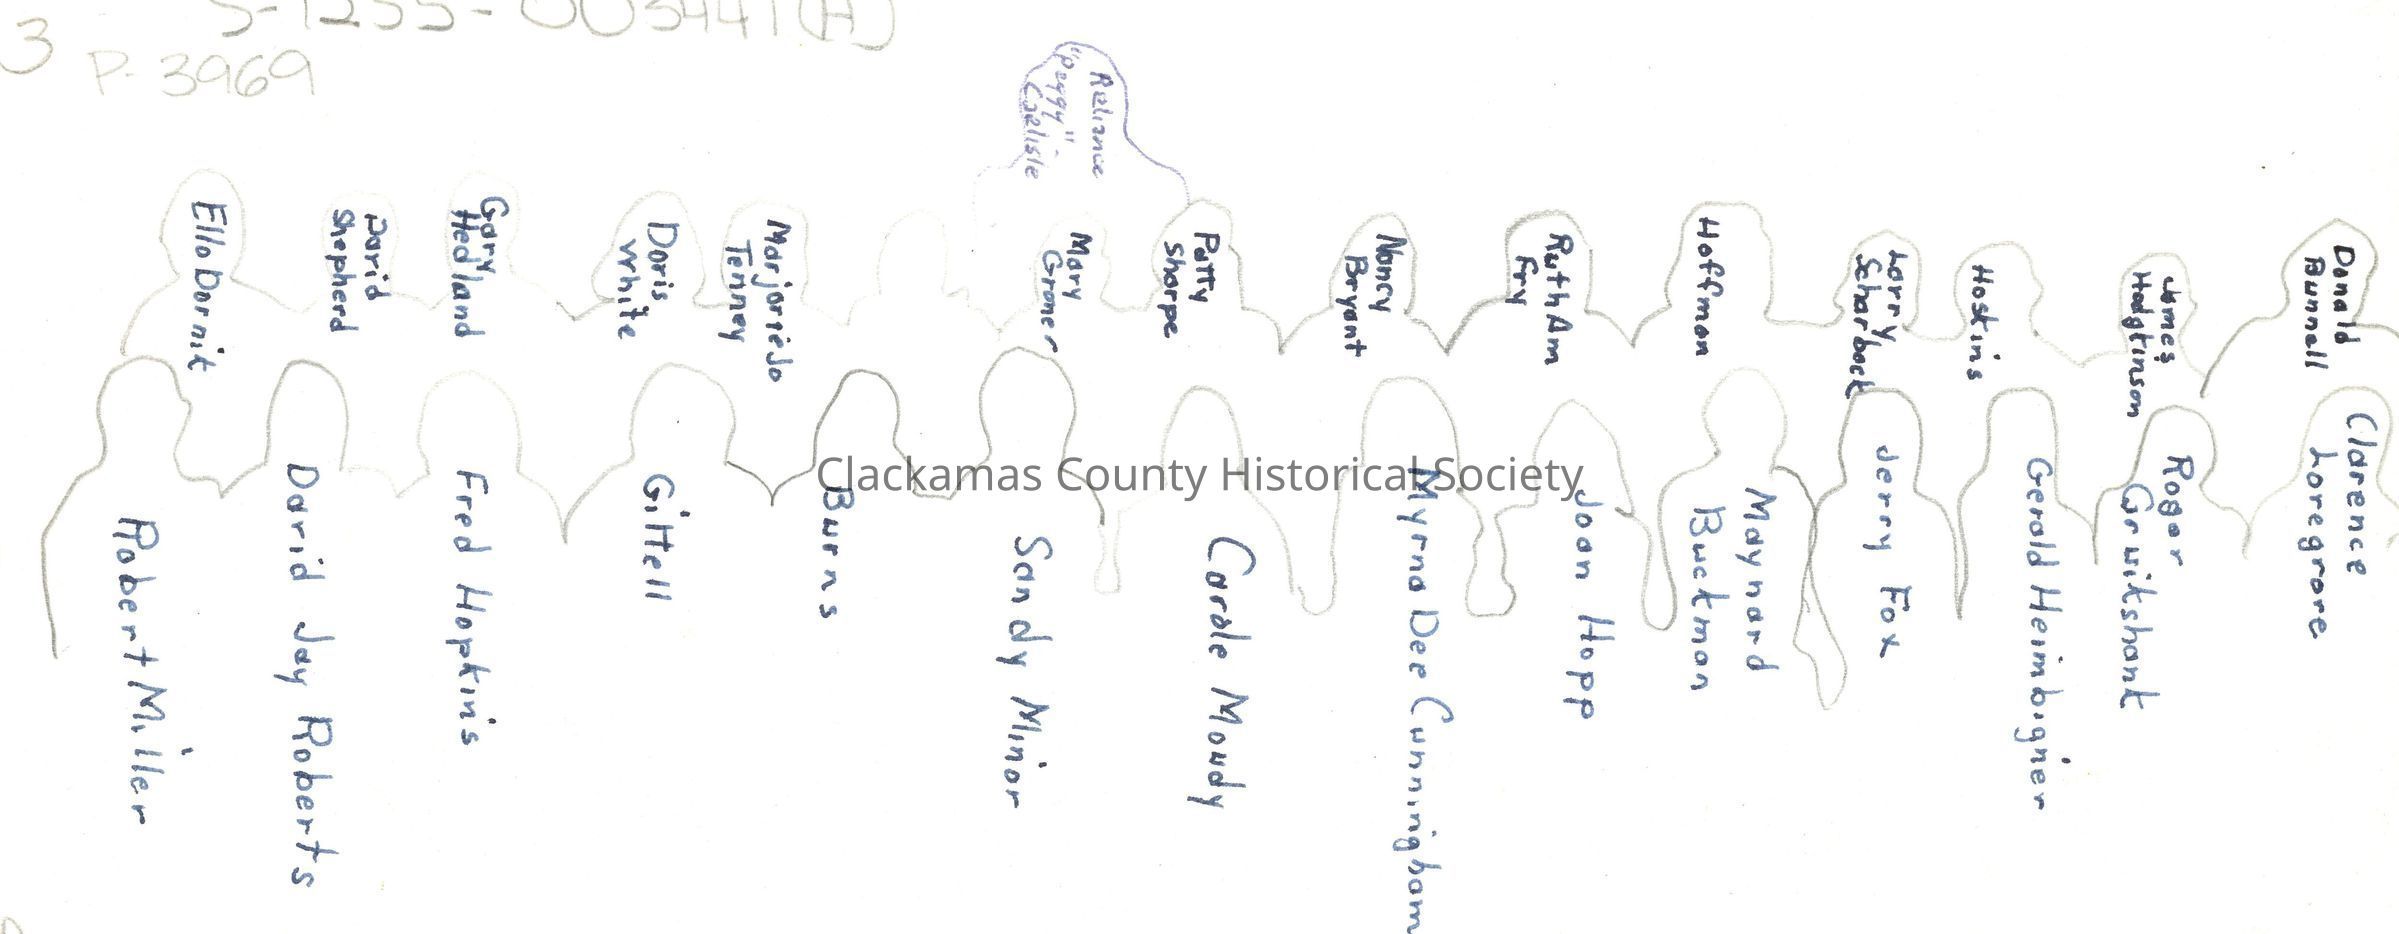 3
S-1255-003441(A)
P-3969
"peggy"
Carlisle
Ello Dornit
David
Shepherd
Gary
Hedland
Doris
White
Marjorie Jo
Tenney
Mary
Cromer
Patty
Sharpe
Nancy
Bryant
Ruth Am
Fry
Hoffman
Larry
Scharback
Hoskins
James
Hodgkinson
Donald
Bunnell
Robert Miller
David Jay Roberts
Fred Hopkins
Gittell
Burns
Sandy Minor
Carole Moudy
Myrna Dee Cunningham
Joan Hopp
Maynard
Buckman
Jerry Fox
Gerald Heimbigner
Roger
Cruikshank
Clarence
Loregrore
Clackamas County Historical Society